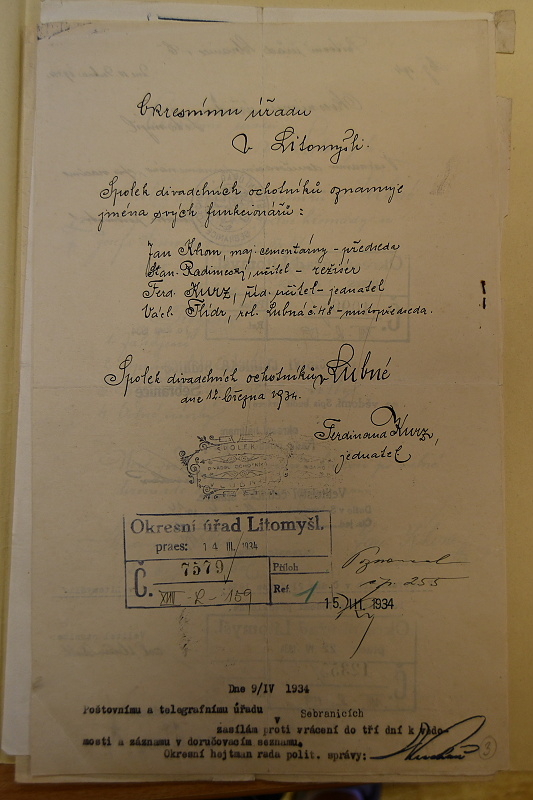 Okresnímu úřadu
v Litomyšli.
Spolek divadelních ochotníků oznamuje
jména svých funkcionářů:
Jan Khom, maj. cementárny - předseda
Stan. Radimecký, učitel - režisér
Ferd. Kurz, říd. učitel - jednatel
Václ. Flídr, rol. Lubná č. 48 - místopředseda.
Spolek divadelních ochotníků v Lubné
dne 12. března 1934.
Ferdinand Kurz,
jednatel
SPOLEK
Okresní úřad Litomyšl.
praes: 14 III. 1934
Č. 7579
XIII - R - 159
Příloh
Ref. 1
č.p. 255
15. III. 1934
Dne 9/IV 1934
Poštovnímu a telegrafnímu úřadu
v Sebranicích
zasílám proti vrácení do tří dní k vědo-
mosti a záznamu v doručovacím seznamu.
Okresní hejtman rada polit. správy:
3